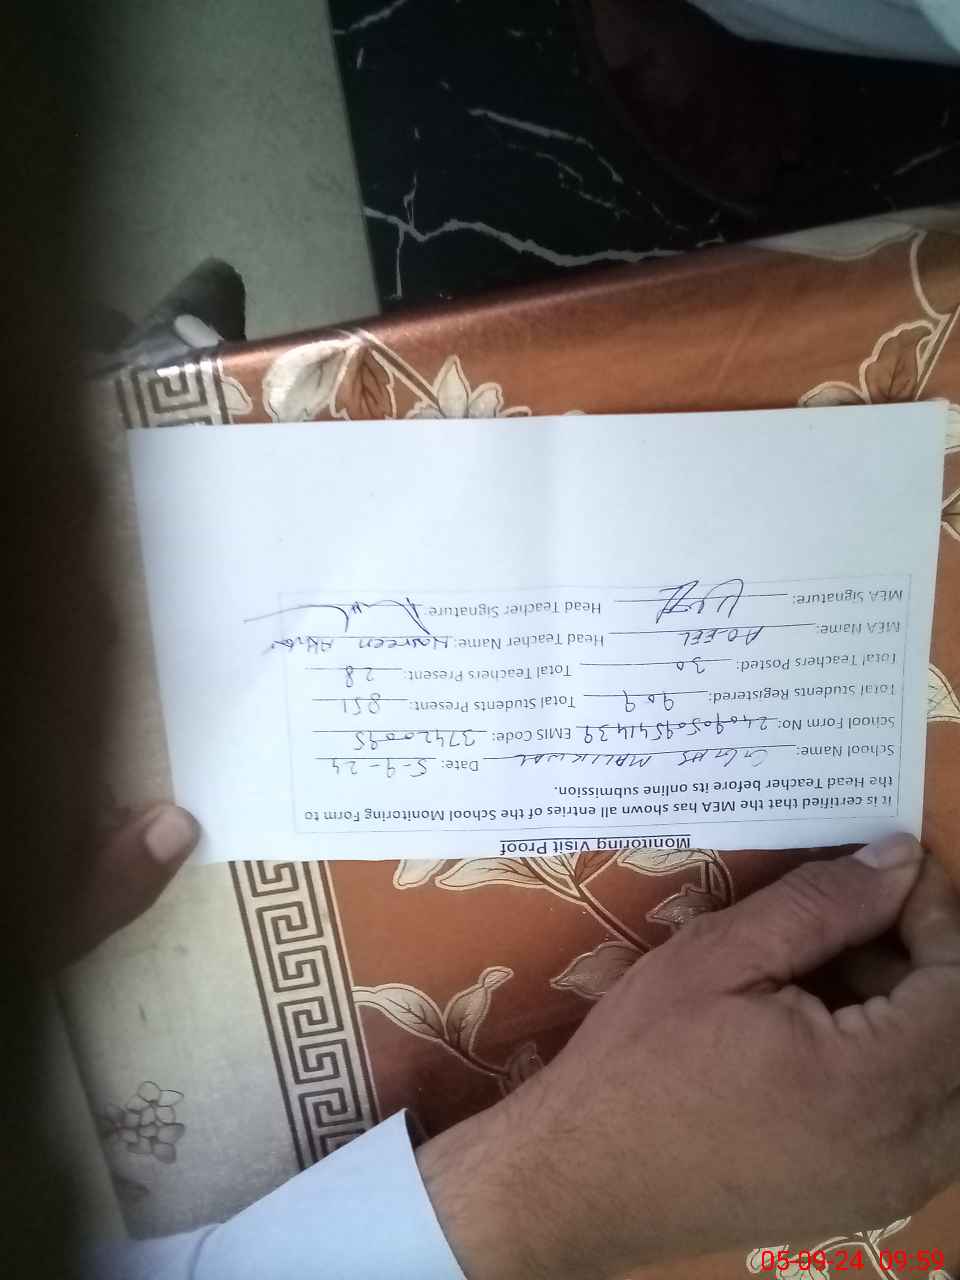 Monitoring Visit Proof
it is certified that the MEA has shown all entries of the School Monitoring Form to
the Head Teacher before its online submission.
School Name: GGHS MALIKWAL Date: 5-9-24
School Form No: EMIS Code: 37420095
Total Students Registered: 909 Total Students Present: 851
Total Teachers Posted: 30 Total Teachers Present: 28
MEA Name: AQEEL Head Teacher Name:
MEA Signature: Head Teacher Signature:
05-09-24 09:59